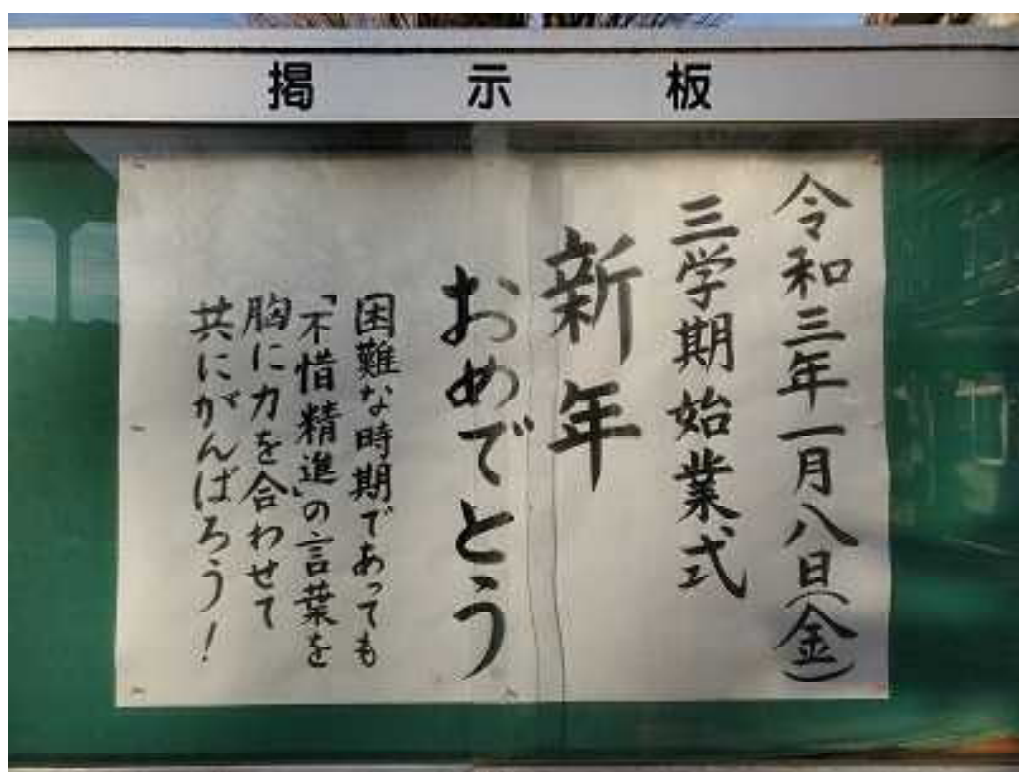 掲示板
令和三年一月八日(金)
三学期始業式
新年
おめでとう
困難な時期であっても
「不惜精進」の言葉を
胸に力を合わせて
共にがんばろう!